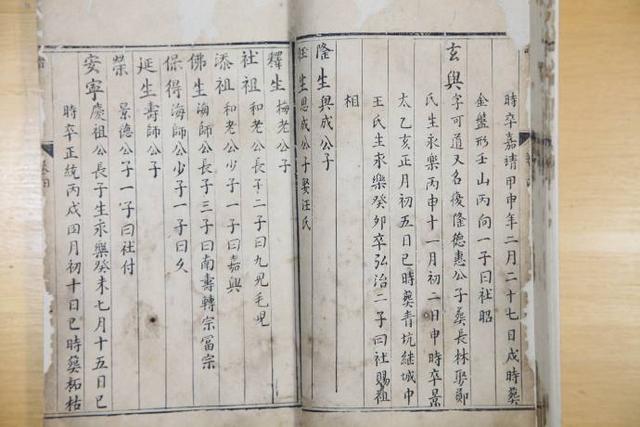 時卒嘉靖甲申年二月二十七日戌時葬
金盤形壬山丙向一子曰社昭
玄與字可道又名復隆德惠公子葬長林娶鄭
氏生永樂丙申十一月初二日申時卒景
太乙亥正月初五日巳時葬青坑継城巾
王氏生永樂癸卯卒弘治二子曰社賜祖
相
隆生與成公子
生思成公子娶汪氏
釋生梅老公子
社祖和老公長子二子曰九児毛児
添祖和老公少子一子曰嘉興
佛生海師公長子三子曰南壽轉宗富宗
保得海師公少子一子曰久
延生壽師公子
榮景德公子一子曰社付
安寧慶祖公長子生永樂癸未七月十五日巳
時卒正統丙戌四月初十日巳時葬柘枯